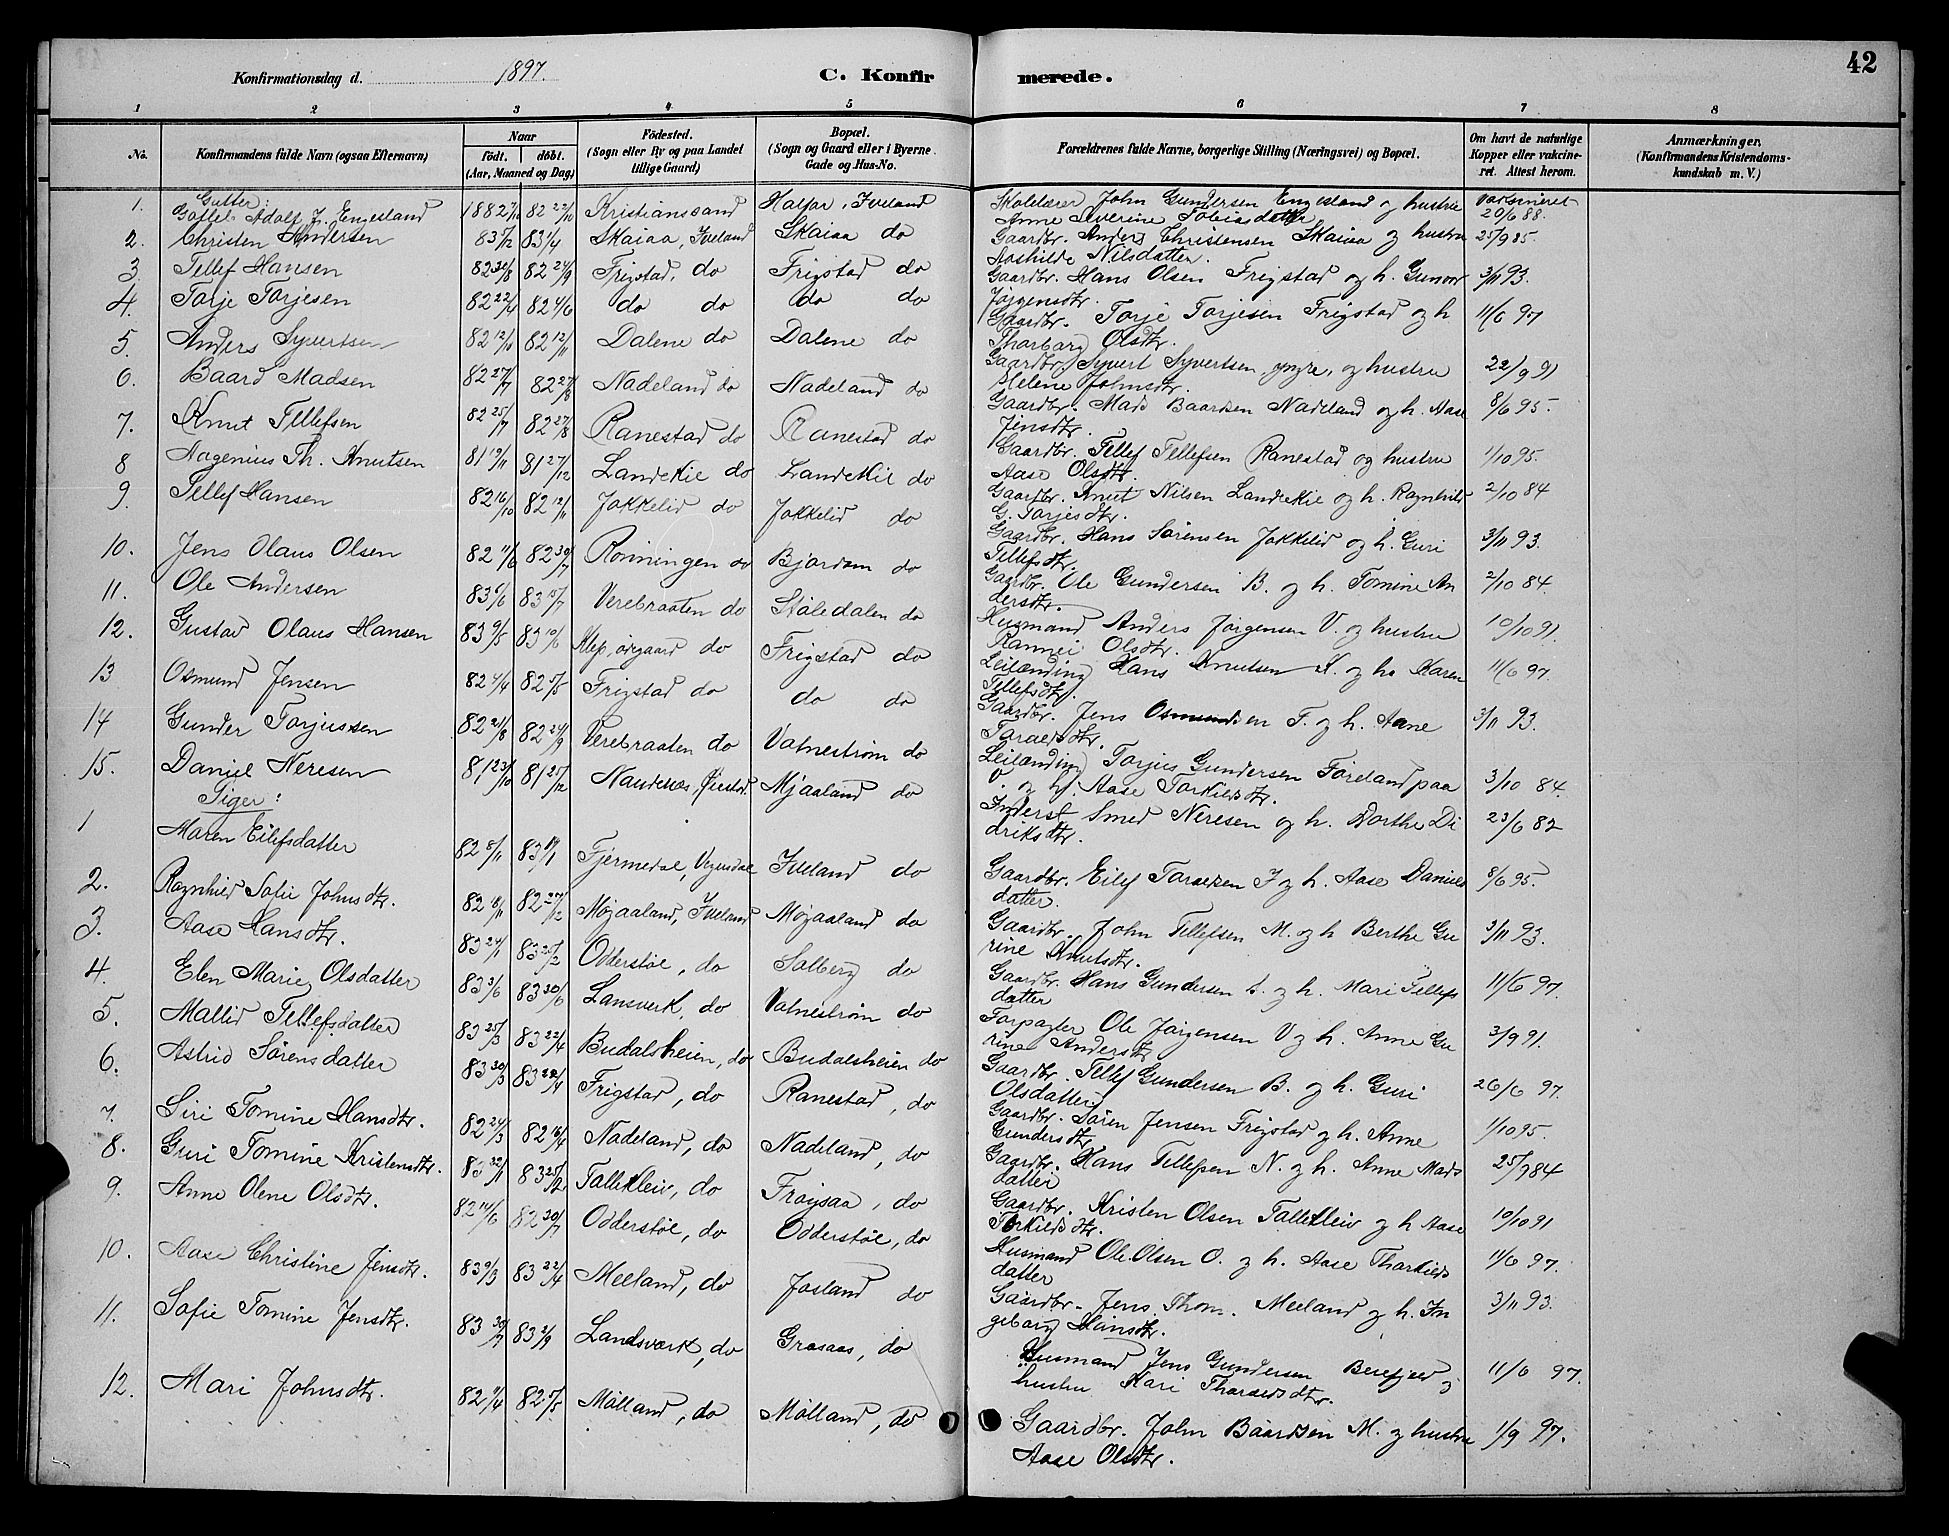 42
Konfirmationsdag d. 1897. C. Konfirmerede.
1 2 3 4 5 6 7 8
No. Konfirmandens fulde Navn (ogsaa Efternavn) Naar födt. döbt. (Aar, Maaned og Dag) Födested. (Sogn eller By og paa Landet tillige Gaard) Bopæl. (Sogn og Gaard eller i Byerne Gade og Hus-No. Forældrenes fulde Navne, borgerlige Stilling (Næringsvei) og Bopæl. Om havt de naturlige Kopper eller vakcineret. Attest herom. Anmærkninger. (Konfirmandens Kristendomskundskab m. V.)
Gutter:
1. Adolf J. Engesland 1882 82 22/10 Kristianssand Iveland Skolelærer John Gundersen Engesland og hustru Anne Severine Tobiasdatter vaksineret 20/6 88.
2. Christen Andersen 83 5/2 83 1/4 Skaiaa, Iveland Skaiaa do Gaardbr. Anders Christensen Skaiaa og hustru Aashilde Nilsdatter. 25/9 85.
3. Tellef Hansen 82 30/8 82 24/9 Frigstad, do Frigstad do Gaardbr. Hans Olsen Frigstad og h. Gunvor Jörgensdtr. 3/11 93.
4. Torje Torjesen 82 22/4 82 4/6 do do do do Gaardbr. Torje Torjesen Frigstad og h Thorborg Olsdtr. 11/6 97
5. Anders Syvertsen 82 12/10 82 12/11 Dalene do Dalene do Gaardbr. Syvert Syvertsen, yngre, og hustru Helene Johnsdtr. 22/9 91
6. Baard Madsen 82 27/7 82 27/8 Nadeland do Nadeland do Gaardbr. Mads Baardsen Nadeland og h. Aase Jensdtr. 8/6 95.
7. Knut Tellefsen 82 25/7 82 27/8 Ranestad do Ranestad do Gaardbr. Tellef Tellefsen Ranestad og hustru Aase Olsdtr. 1/10 95.
8 Aagenius Th. Knutsen 81 19/11 81 27/12 Landekie do Landekil do Gaardbr. Knut Nilsen Landekie og h. Ragnhild G. Torjesdtr. 2/10 84
9. Tellef Hansen 82 16/10 82 12/11 Jokkelid do Jokkelid do Gaardbr. Hans Sørensen Jokkelid og h. Guri Tellefsdtr. 3/11 93.
10. Jens Olaus Olsen 82 11/6 82 30/7 Rönningen do Bjordam do Gaardbr. Ole Gundersen B. og h. Tomine Andersdtr. 2/10 84.
11. Ole Andersen 83 6/6 83 15/7 Verebraaten do Støledalen do Husmand Anders Jørgensen V. og hustru Rannei Olsdtr. 10/10 91.
12. Gustav Olaus Hansen 83 9/5 83 10/6 Klep, ødegaard do Frigstad do Leilænding Hans Knutsen K. og h. Karen Tellefsdtr. 11/6 97.
13 Osmund Jensen 82 4/4 82 5/5 Frigstad do do do Gaardbr. Jens Osmundsen F. og h. Aane Taraldsdtr. 3/11 93.
14 Gunder Torjussen 82 21/8 82 24/9 Verebraaten do Vatnestrøm do Leilænding Torjus Gundersen Föreland paa V. og h. Aase Torkildsdtr. 3/10 84.
15. Daniel Neresen 81 23/10 81 25/12 Naudenes, Øiestad. Mjaaland do Inderst Smed Neresen og h. Dorthe Didriksdtr. 23/6 82
Piger:
1 Maren Eilefsdatter 82 8/11 83 1/1 Fjermedal, Vegusdal Iveland do Gaardbr. Eilef Taraldsen I og h. Aase Danielsdatter. 8/6 95.
2. Ragnhild Sofie Johnsdtr. 82 18/11 82 27/12 Mojaaland, Iveland Mojaaland do Gaardbr. John Tellefsen M. og h Berthe Gurine Knutsdtr. 3/11 93.
3. Aase Hansdtr. 83 24/1 83 25/2 Odderstøl, do Solberg do Gaardbr. Hans Gundersen S. og h. Mari Tellefsdatter 11/6 97.
4. Elen Marie Olsdatter 83 3/6 83 30/6 Lansverk, do Vatnestrøm do Forpagter Ole Jørgensen V og h. Anne Gurine Andersdtr 3/9 91.
5. Mallid Tellefsdatter 83 25/3 83 22/4 Budalsheien, do Budalsheien do Gaardbr. Tellef Gundersen B. og h. Guri Olsdatter 26/6 97.
6. Astrid Sørensdatter 83 30/3 83 22/4 Frigstad, do Ranestad, do Gaardbr. Søren Jensen Frigstad og h. Anne Gundersdtr. 1/10 95.
7. Siri Tomine Hansdtr. 82 24/3 82 16/4 Nadeland, do Nadeland, do Gaardbr. Hans Tellefsen N. og h. Anne Madsdatter 25/9 84
8. Guri Tomine Kristensdtr. 83 83 25/2 Tallekleiv, do Frøysaa, do Gaardbr. Kristen Olsen Tallekleiv og h Aase Torkildsdtr. 10/10 91
9. Anne Olene Olsdtr. 82 14/6 82 30/7 Odderstøl, do Odderstøl, do Husmand Ole Olsen O. og h. Aase Thorkildsdatter 11/6 97.
10. Aase Christine Jensdtr. 83 9/3 83 22/4 Meeland, do Josland do Gaardbr. Jens Thom. Meeland og h. Ingeborg Hansdtr. 3/11 93.
11. Sofie Tomine Jensdtr. 83 30/7 83 2/9 Landsverk, do Grosaas, do Husmand Jens Gundersen Berefjeld og hustru Kari Tharaldsdtr. 11/6 97.
12. Mari Johnsdtr. 82 9/4 82 5/5 Mölland, do Mölland, do Gaardbr. John Baardsen M. og hustru Aase Olsdtr. 1/9 97.